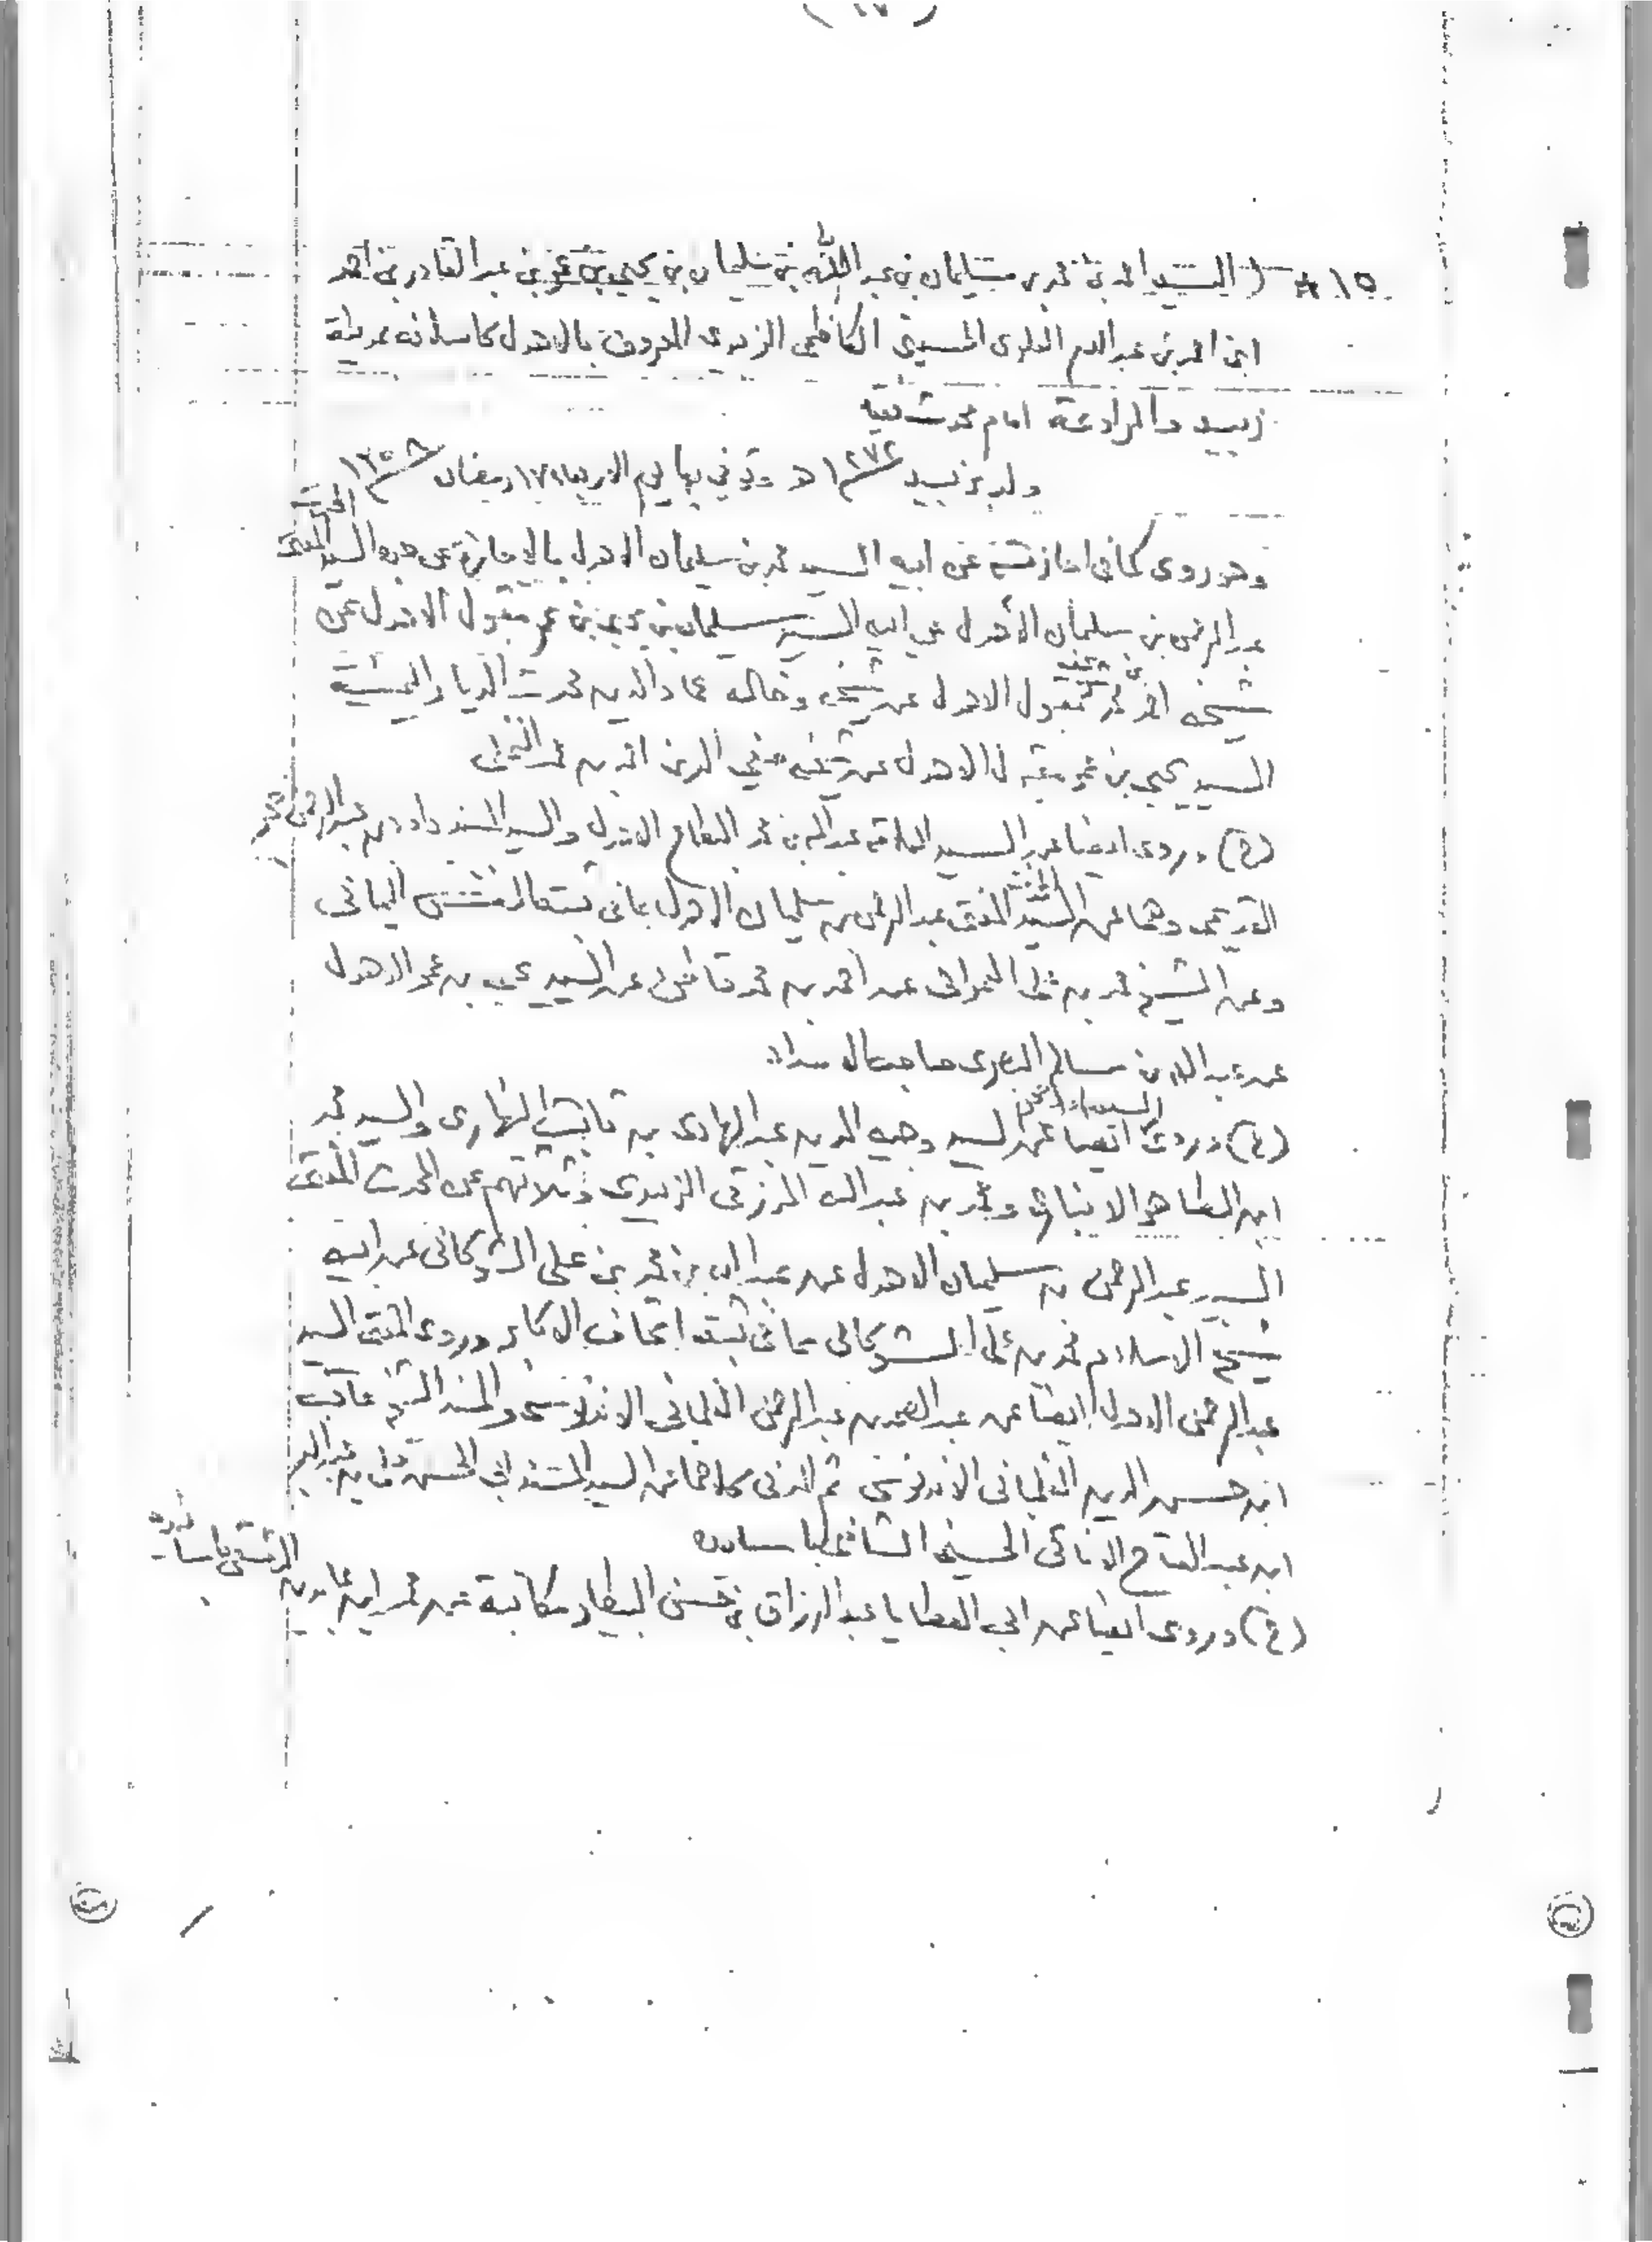 (١٧)
١٥ * السيد احمد بن محمد بن سليمان بن عبد الله بن سليمان بن يحيى بن عمر بن عبد القادر بن احمد
ابن احمد بن عبد الله العلوى الحسينى الكاظمى الزبيدى المعروف بالاهدل كاسلافه مدينة
زبيد والمراوعة امام محدث فقيه
ولد بزبيد ١٢٧٢ هـ وتوفي بها يوم الاربعاء ١٧ رمضان ١٣٥٨
وهو روى كما فى اجازته عن ابيه السيد محمد بن سليمان الاهدل بالاجازة عن السيد المفتى
عبد الرحمن بن سليمان الأهدل عن ابيه السيد سليمان بن يحيى بن عمر مقبول الاهدل عن
شيخه احمد بن محمد مقبول الاهدل عن شيخه وخاله عماد الدين محدث الديار اليمنية
السيد يحيى بن عمر مقبول الاهدل عن شيخه صفي الدين احمد بن محمد النخلى
(ح) وروى ايضا عن السيد العلامة عبد الله بن محمد البطاح الاهدل والسيد المسند داود بن عبد الرحمن حجر
القديمى وهما عن السيد المفتى عبد الرحمن بن سليمان الاهدل بمافى ثبته النفس اليمانى
وعن الشيخ محمد بن على العمرانى عن احمد بن محمد قاطن عن السيد يحيى بن عمر الاهدل
عن عبد الله بن سالم البصرى صاحب الامداد
(ح) وروى ايضا عن السيد وجيه الدين عبد الهادى بن ثابت النهارى والسيد محمد
ابن الطاهر الانبارى ومحمد بن عبد الله الزبيدى وثلاثتهم عن المحدث المفتى
السيد عبد الرحمن بن سليمان الاهدل عن عبد الله بن محمد بن على الشوكانى عن ابيه
شيخ الاسلام محمد بن على الشوكانى بمافى ثبته اتحاف الاكابر وروى المفتى السيد
عبد الرحمن الاهدل ايضا عن عبد الصمد بن عبد الرحمن الفلمبانى الاندونيسى والمسند الشيخ عاقب
ابن حسن الدين الفلمبانى الاندونيسى ثم المدنى كلاهما عن السيد المسند ابى الحسن على بن عبد البر
ابن عبد الفتاح الونائى الحسينى الشافعى باسانيده
(ح) وروى ايضا عن ابى العطايا عبد الرزاق بن حسن البيطار مكاتبة عن محمد امين عابدين الدمشقى باسانيده